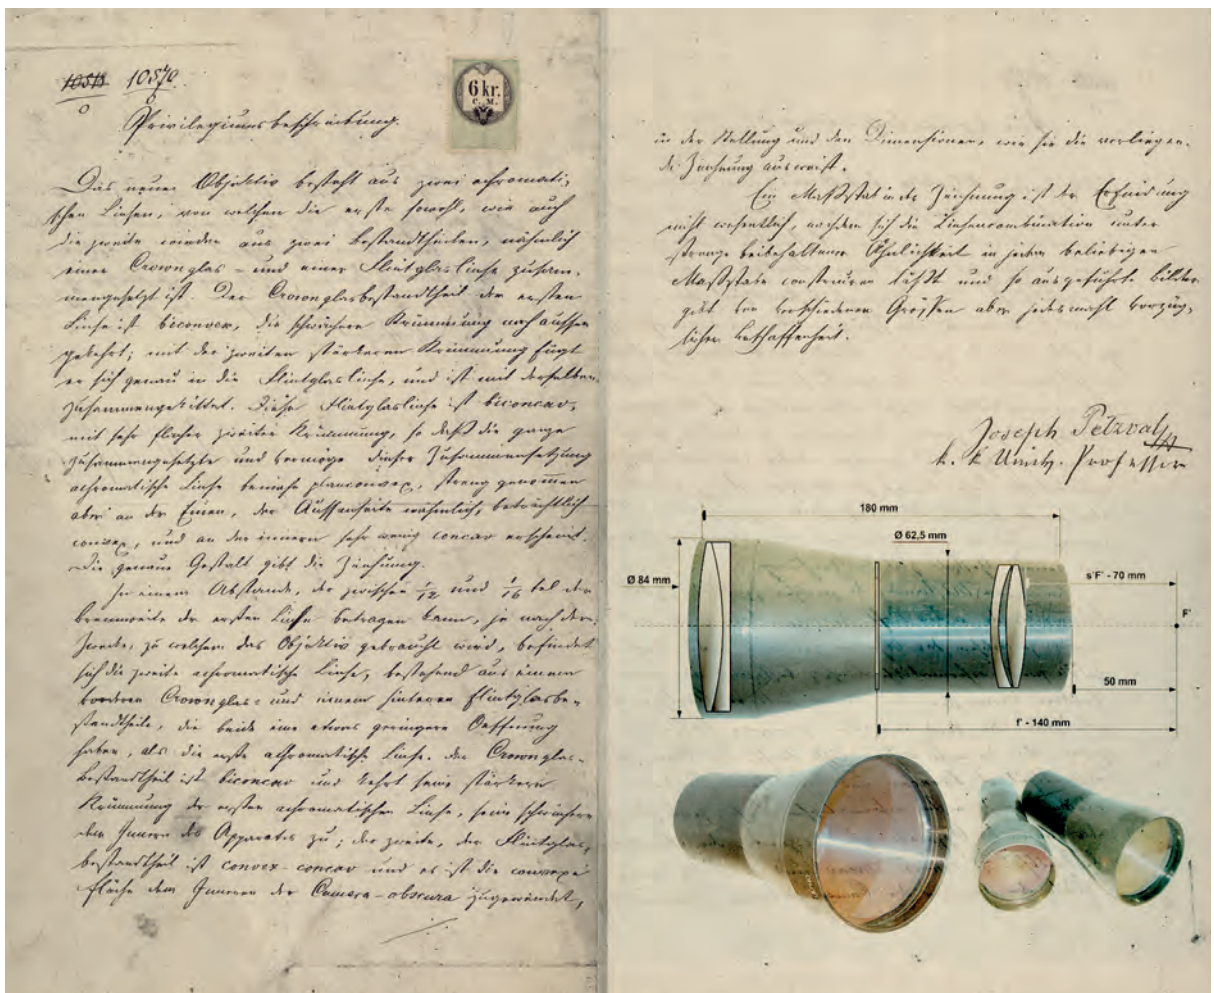 10518 10570.
6 kr.
C. M.
Privilegiumsbeschreibung.
Das neue Objektiv besteht aus zwei achromati-
schen Linsen, von welchen die erste sowohl, wie auch
die zweite wieder aus zwei Bestandtheilen, nähmlich
einer Crownglas- und einer Flintglaslinse zusam-
mengesetzt ist. Der Crownglasbestandtheil der ersten
Linse ist biconvex, die schwächere Krümmung nach aussen
gekehrt; mit der zweiten stärkeren Krümmung fügt
er sich genau in die Flintglaslinse, und ist mit derselben
zusammengekittet. Diese Flintglaslinse ist biconcav,
mit sehr flacher zweiter Krümmung, so daß die ganze
zusammengesetzte und vermöge dieser Zusammensetzung
achromatische Linse beinahe planconvex, streng genomen
aber an der Einen, der Aussenseite nähmlich, beträchtlich
convex, und an der innern sehr wenig concav erscheint.
Die genaue Gestalt gibt die Zeichnung.
In einem Abstande, der zwischen 1/12 und 1/16 tel der
Brennweite der ersten Linse betragen kann, je nach dem
Zwecke, zu welchem das Objektiv gebraucht wird, befindet
sich die zweite achromatische Linse, bestehend aus einem
vorderen Crownglas- und einem hinteren Flintglasbe-
standtheile, die beide eine etwas geringere Oeffnung
haben, als die erste achromatische Linse. Der Crownglas-
bestandtheil ist biconcav und kehrt seine stärkere
Krümmung der ersten achromatischen Linse, seine schwächere
dem Innern des Apparates zu; der zweite, der Flintglas-
bestandtheil ist convex-concav und es ist die convexe
Fläche dem Inneren der Camera-obscura zugewendet,
in der Stellung und den Dimensionen, wie sie die vorliegen-
de Zeichnung ausweist.
Ein Maßstab in der Zeichnung ist der Erfindung
nicht wesentlich, nachdem sich die Linsencombination unter
strenge beibehaltener Ähnlichkeit in jedem beliebigen
Maßstabe construiren läßt und so ausgeführt Bilder
gibt von verschiedenen Grössen aber jedesmahl vorzüg-
licher Beschaffenheit.
Joseph Petzval
k. k. Univ. Professor
180 mm
Ø 62,5 mm
Ø 84 mm
s'F' - 70 mm
F'
50 mm
f' - 140 mm